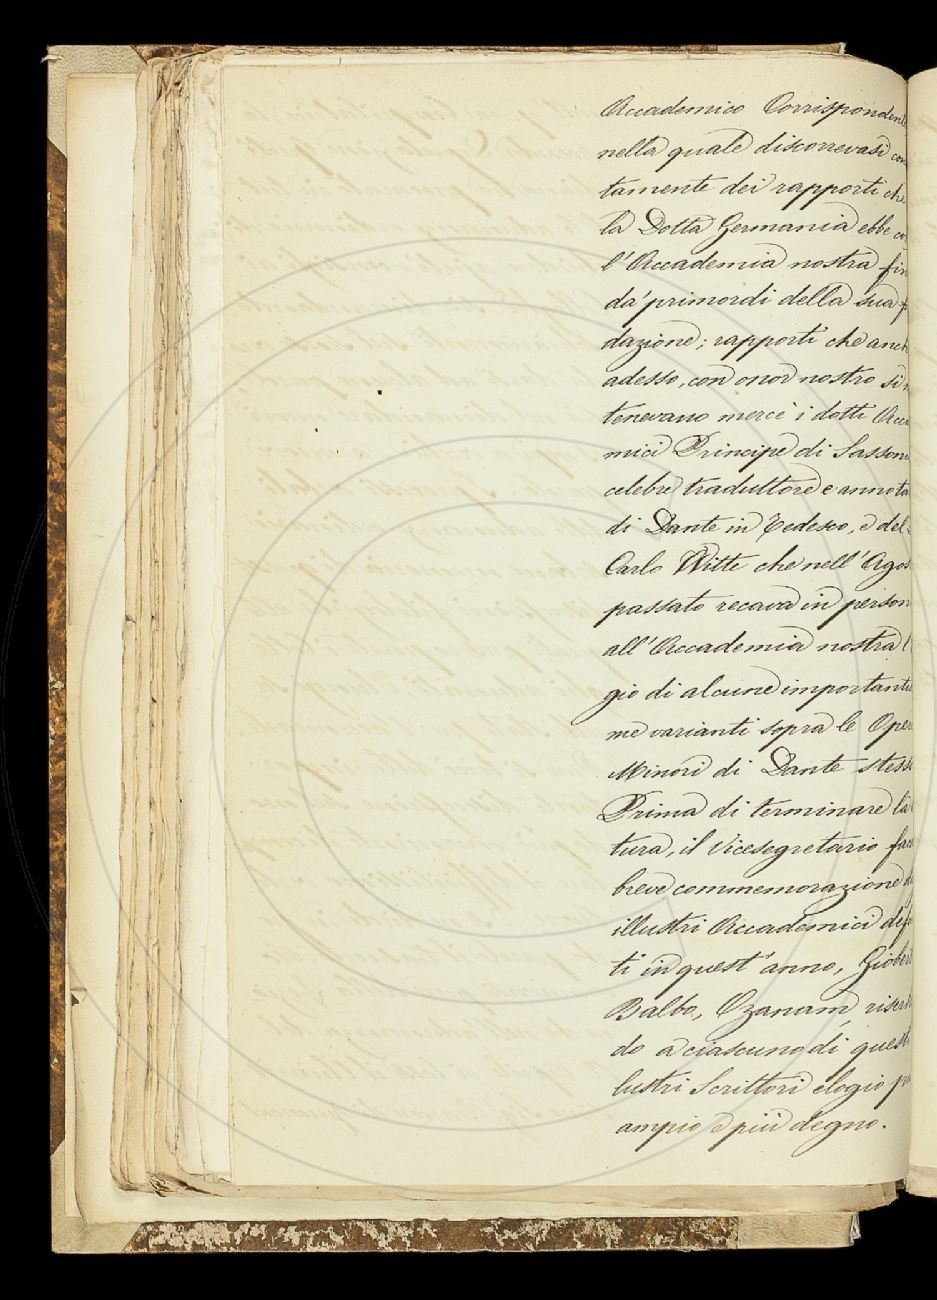 Accademico Corrispondente
nella quale discorrevasi con
tamente dei rapporti che
la Dotta Germania ebbe co
l'Accademia nostra fin
da' primordi della sua f
dazione; rapporti che anch
adesso, con onor nostro si
tenevano mercè i dotti Acca
mici Principe di Sasson
celebre traduttore e annota
di Dante in Tedesco, e del
Carlo Witte che nell'Agos
passato recava in person
all'Accademia nostra l'
gio di alcune importantis
me varianti sopra le Oper
Minori di Dante stess
Prima di terminare la
tura, il Vicesegretario fac
breve commemorazione d
illustri Accademici defu
ti in quest'anno, Giobert
Balbo, Ozanam, riser
do a ciascuno di quest
lustri Scrittori elogio p
ampio e più degno.